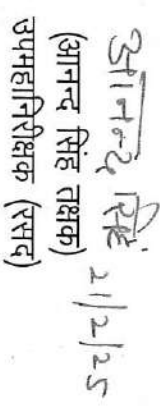 आनन्द सिंह 21/2/25
(आनन्द सिंह तक्षक)
उपमहानिरीक्षक (रसद)